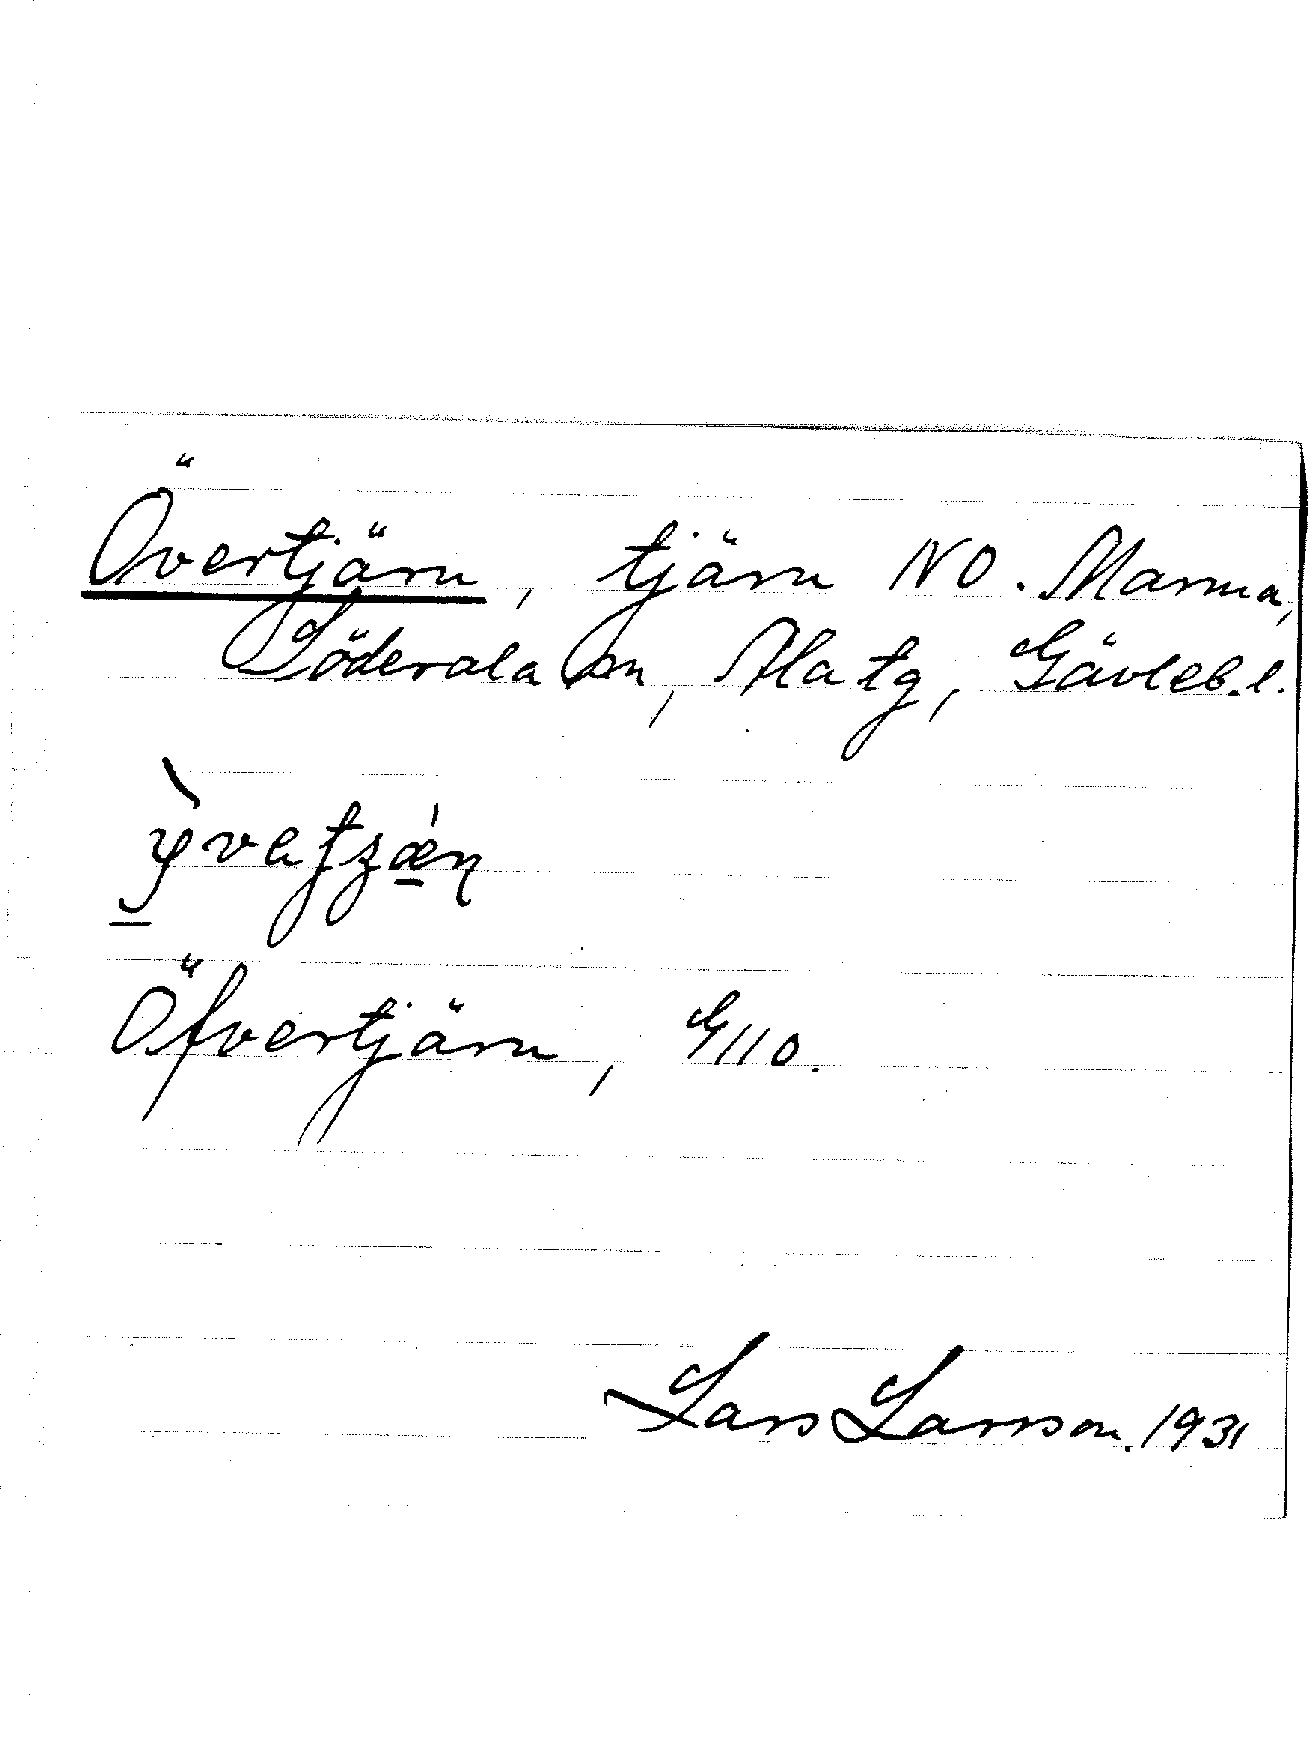 Övertjärn, tjärn NO. Marma,
Söderala sn, Ala tg, Gävleb.l.
Öfvertjärn, G110.
Lars Larsson. 1931